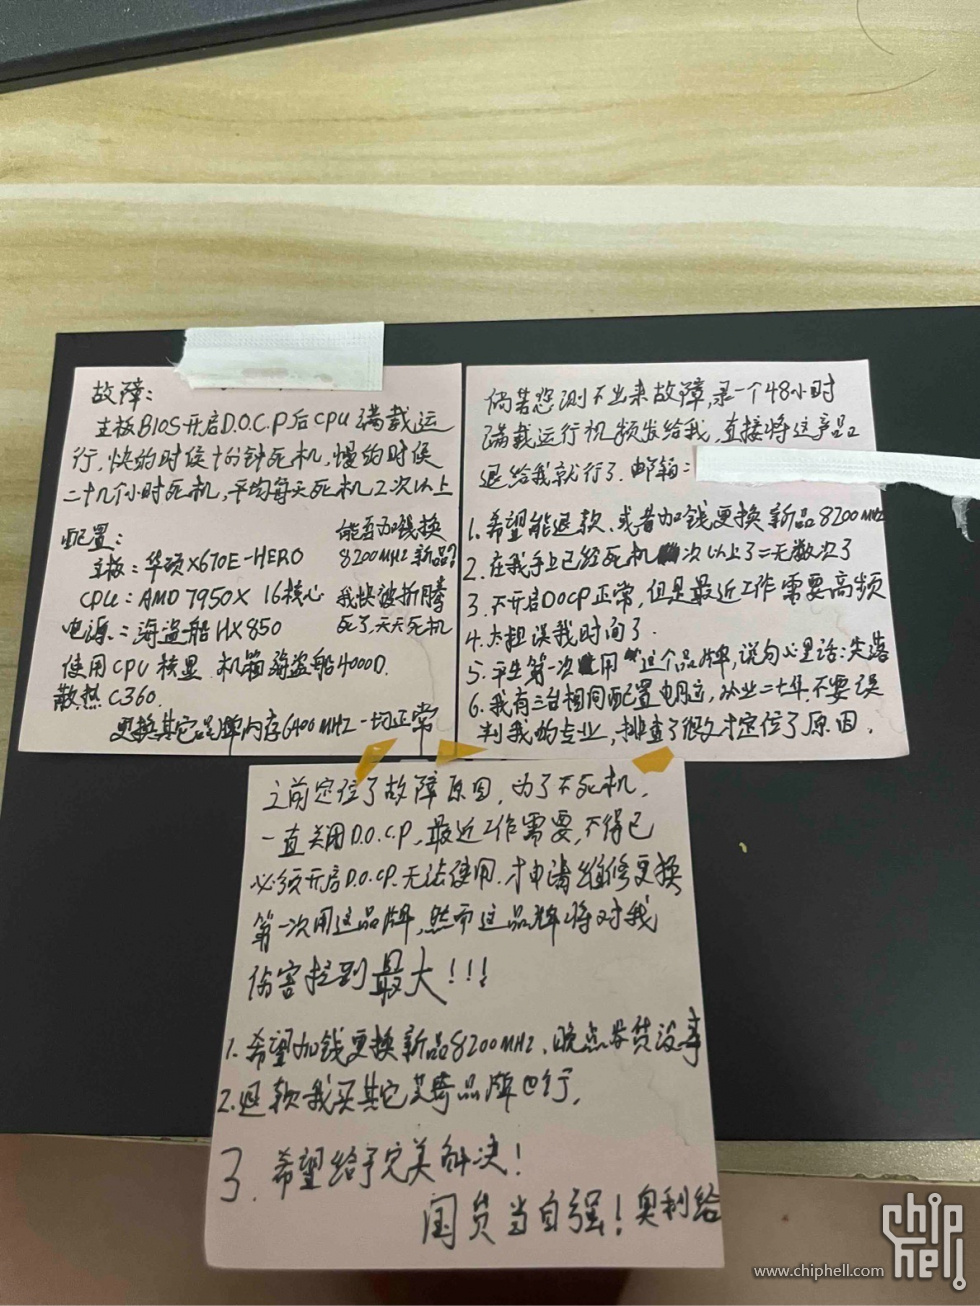 故障:
主板BIOS开启D.O.C.P后CPU满载运
行,快的时候十的钟死机,慢的时候
二十几个小时死机,平均每天死机2次以上
配置:
主板:华硕X670E-HERO
CPU:AMD 7950X 16核心
电源:海盗船HX850
使用CPU核显.机箱海盗船4000D.
散热C360.
更换其它品牌内存6400MHZ一切正常
能否加钱换
8200MHZ新品?
我快被折腾
死了,天天死机
倘若您测不出来故障,录一个48小时
满载运行视频发给我,直接将这产品
退给我就行了.邮箱:
1.希望能退款.或者加钱更换新品8200MHZ
2.在我手上已经死机 次以上了=无数次了
3.不开启DOCP正常,但是最近工作需要高频
4.太耽误我时间了.
5.平生第一次使用这个品牌,说句心里话:失落
6.我有三台相同配置电脑,从业二十年.不要误
判我的专业,排查了很久才定位了原因.
之前定位了故障原因,为了不死机,
一直关闭D.O.C.P,最近工作需要,不得已
必须开启D.O.C.P.无法使用.才申请维修更换
第一次用这品牌,然而这品牌将对我
伤害拉到最大!!!
1.希望加钱更换新品8200MHZ.晚点发货没事
2.退款我买其它 品牌也行,
3.希望给予完美解决!
国货当自强!奥利给
chip
hell
www.chiphell.com